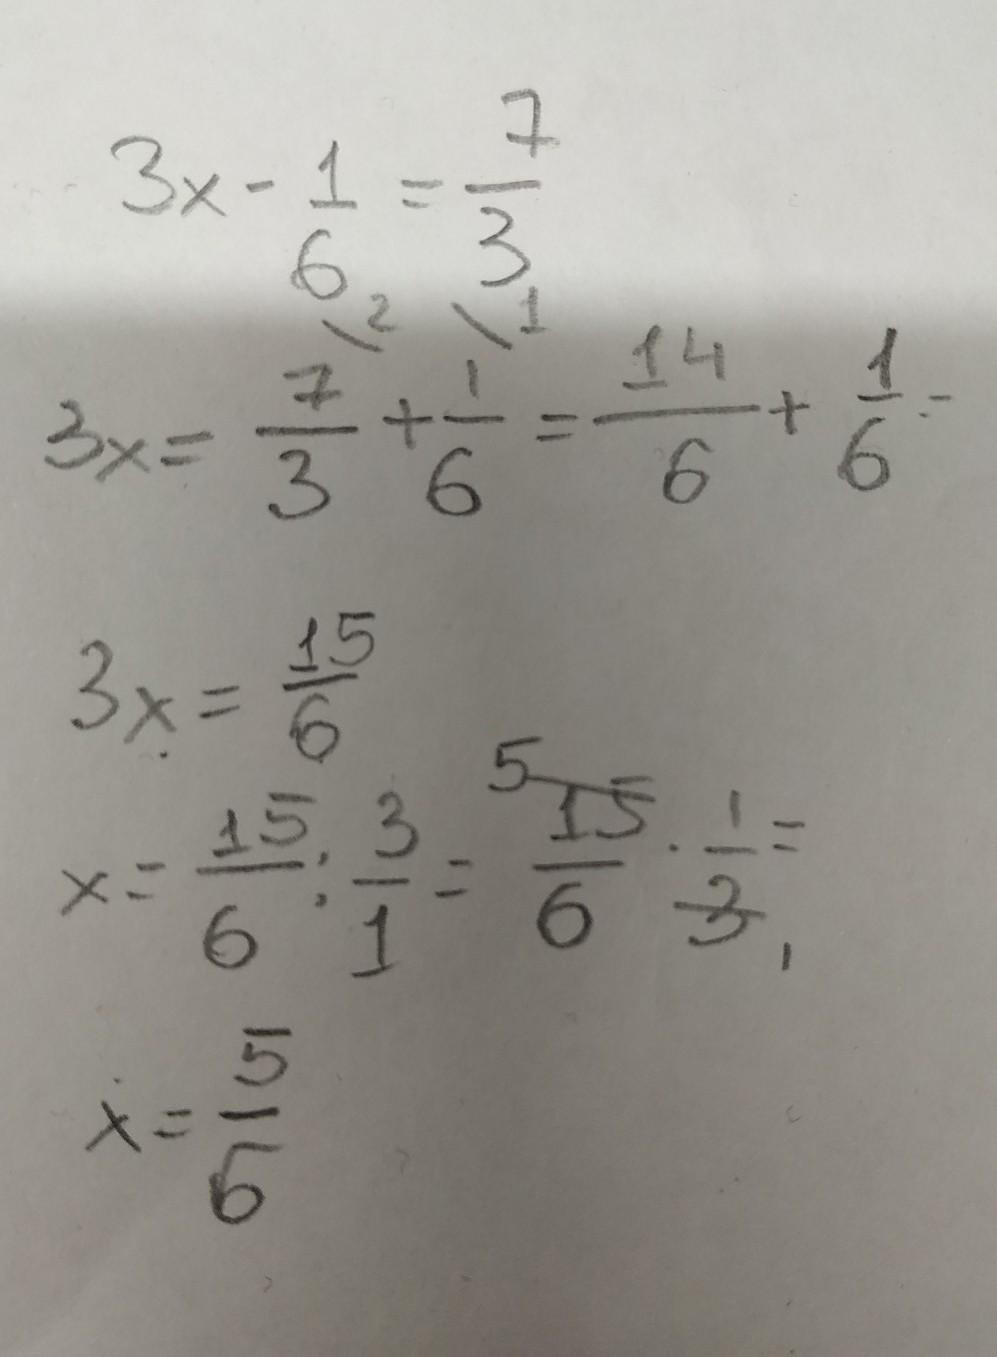 3x - 1/6 = 7/3
3x = 7/3 \2 + 1/6 \1 = 14/6 + 1/6 =
3x = 15/6
x = 15/6 : 3/1 = 5 15/6 · 1/3 1 =
x = 5/6